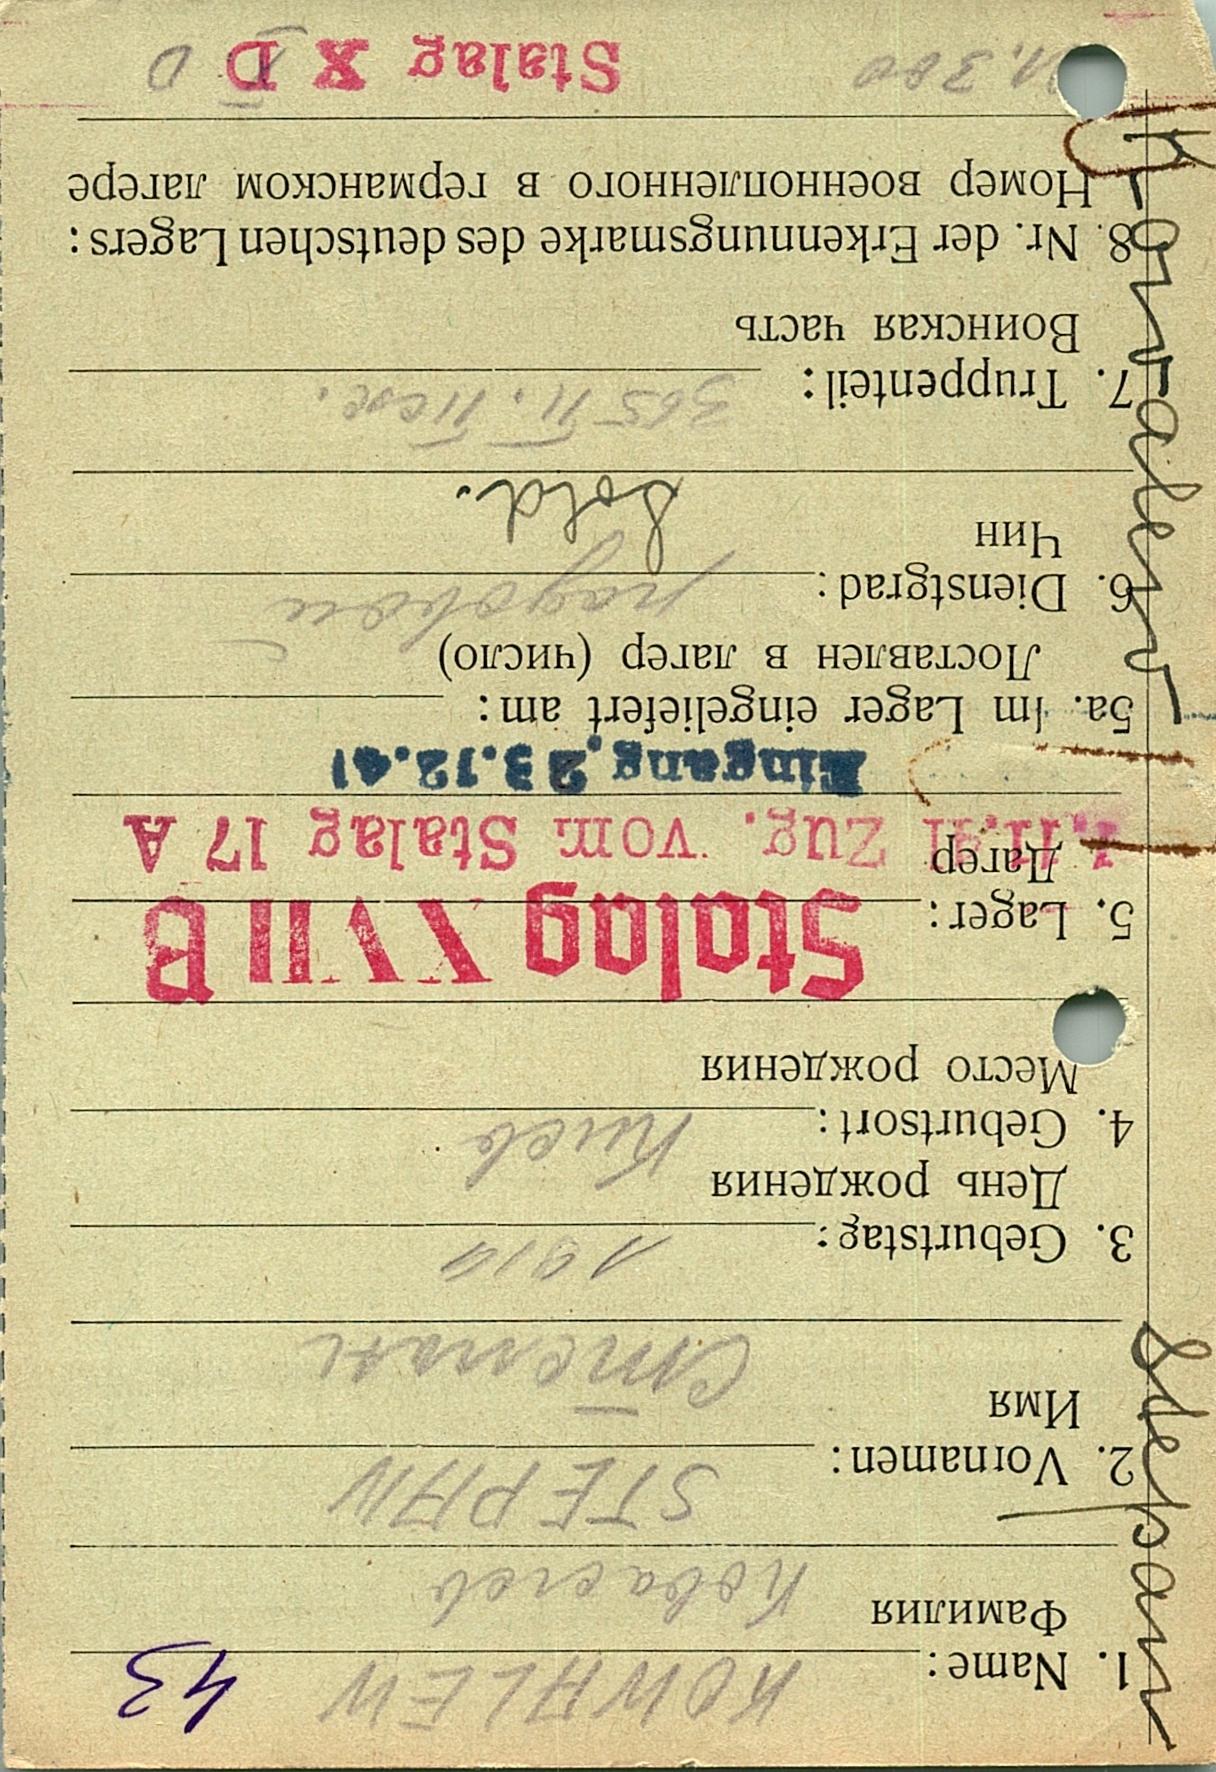 1. Name: KOWALEW 43
Фамилия Ковалев
2. Vornamen: STEPAN
Имя Степан
3. Geburtstag: 1919
День рождения
4. Geburtsort: Киев
Место рождения
Stalag XVII B
5. Lager:
Лагер
1.11.41 Zug. vom Stalag 17 A
Eingang, 23.12.41
5a. Im Lager eingeliefert am:
Лоставлен в лагер (число)
6. Dienstgrad: рядовой
Чин Sold.
7. Truppenteil: 365 п. пех.
Воинская часть
8. Nr. der Erkennungsmarke des deutschen Lagers:
Номер военнопленного в германском лагере
Stalag X D
Kowalew Stepan